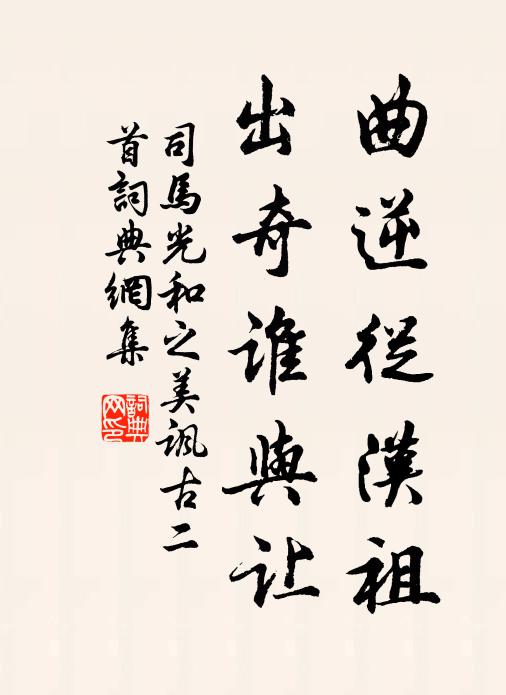 曲逆從漢祖
出奇誰與让
司馬光和之美諷古二
首詞典網集
詞典
网印